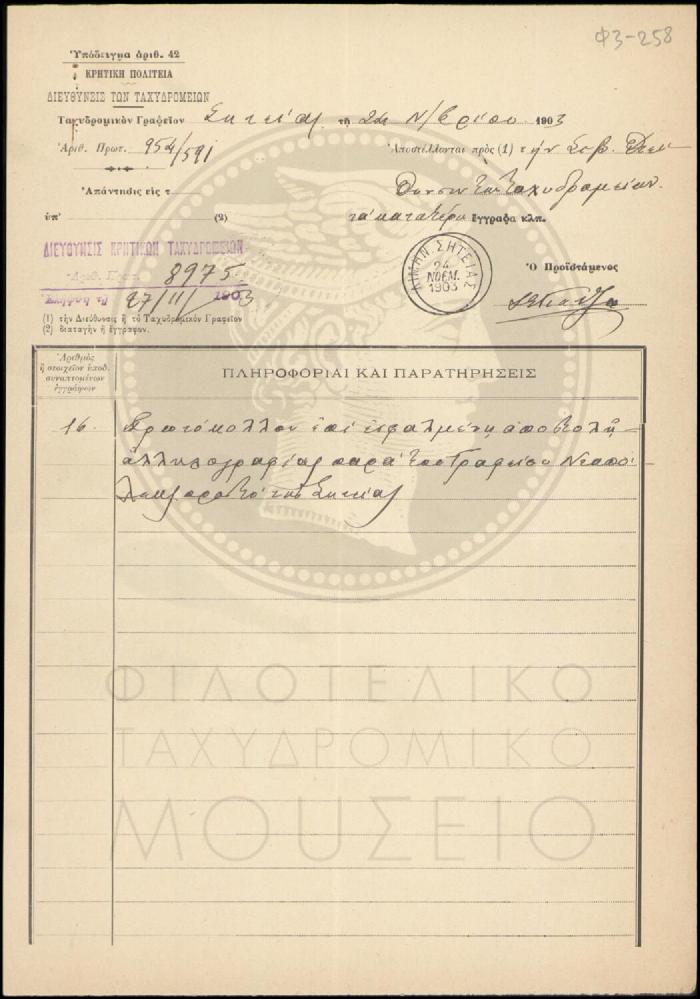 Φ3-258
Ὑπόδειγμα ἀριθ. 42
ΚΡΗΤΙΚΗ ΠΟΛΙΤΕΙΑ
ΔΙΕΥΘΥΝΣΙΣ ΤΩΝ ΤΑΧΥΔΡΟΜΕΙΩΝ
Ταχυδρομικὸν Γραφεῖον Σητείας τῇ 24 Ν/βρίου 1903
Ἀριθ. Πρωτ. 954/591
Ἀποστέλλονται πρὸς (1) τὴν Σεβ. Διεύ
θυνσιν τῶν Ταχυδρομείων
Ἀπάντησις εἰς τ
ὑπ' (2)
τὰ κατωτέρω ἔγγραφα κλπ.
ΔΙΕΥΘΥΝΣΙΣ ΚΡΗΤΙΚΩΝ ΤΑΧΥΔΡΟΜΕΙΩΝ
Ἀριθ. Πρωτ. 8975
27/11/1903
ΛΙΜΗΝ ΣΗΤΕΙΑΣ
24
ΝΟΕΜ.
1903
Ὁ Προϊστάμενος
(1) τὴν Διεύθυνσις ἢ τὸ Ταχυδρομικὸν Γραφεῖον
(2) διαταγὴν ἢ ἔγγραφον.
Ἀριθμὸς
ἢ στοιχεῖον ὑποδ.
συναπτομένων
ἐγγράφων
ΠΛΗΡΟΦΟΡΙΑΙ ΚΑΙ ΠΑΡΑΤΗΡΗΣΕΙΣ
16. Πρωτόκολλον ἐπὶ ἐσφαλμένῃ ἀποστολῇ
ἀλληλογραφίας παρὰ τοῦ Γραφείου Νεαπό
λεως πρὸς τὸ τῆς Σητείας
ΦΙΛΟΤΕΛΙΚΟ
ΤΑΧΥΔΡΟΜΙΚΟ
ΜΟΥΣΕΙΟ